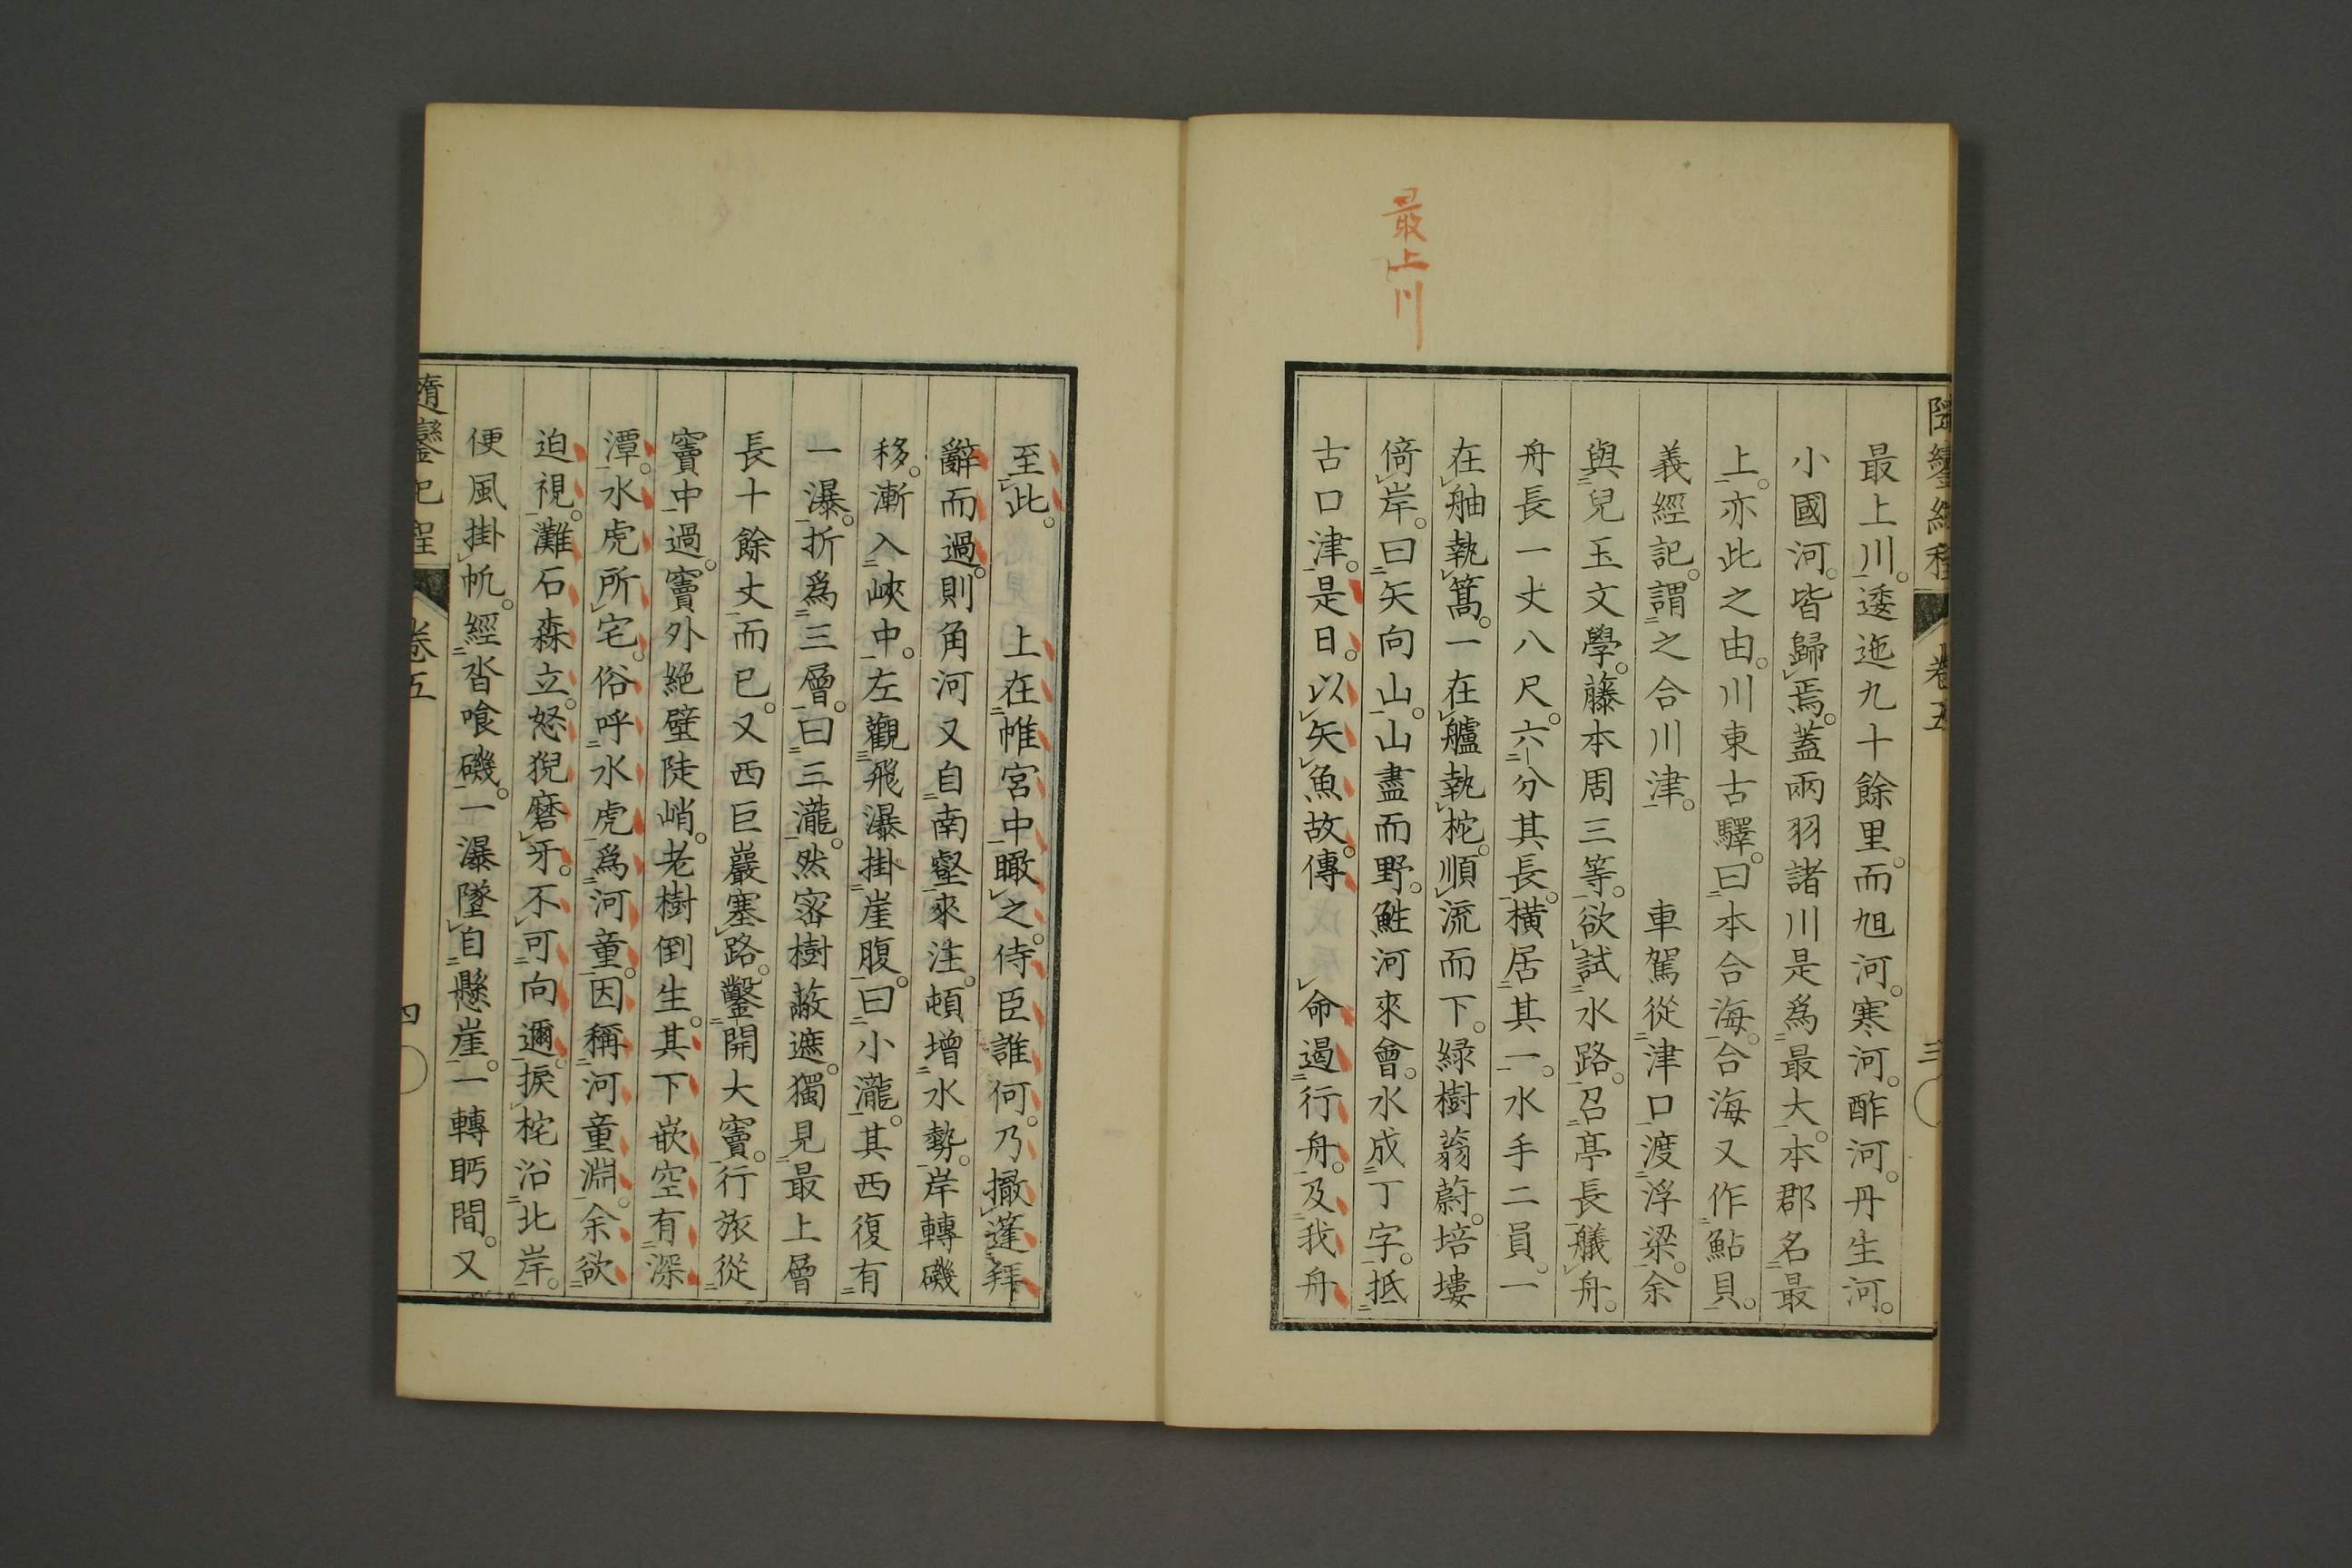 最上川
最上川。逶迤九十餘里。而旭河。寒河。酢河。丹生河。
小國河。皆歸焉。蓋兩羽諸川是爲最大。本郡名最
上。亦此之由。川東古驛。曰本合海。合海又作鮎貝。
義經記。謂之合川津。　車駕從津口渡浮梁。余
與兒玉文學。藤本周三等。欲試水路。召亭長艤舟。
舟長一丈八尺。六分其長。橫居其一。水手二員。一
在舳執篙。一在艫執柁。順流而下。緑樹蓊蔚。培塿
倚岸。曰矢向山。山盡而野。鮭河來會。水成丁字。抵
古口津。是日。以矢魚故。傳　命遏行舟。及我舟
至此。　上在帷宮中瞰之。侍臣誰何。乃撤蓬拜
辭而過。則角河又自南壑來注。頓增水勢。岸轉磯
移。漸入峽中。左觀飛瀑掛崖腹。曰小瀧。其西復有
一瀑。折爲三層。曰三瀧。然密樹蔽遮。獨見最上層
長十餘丈而已。又西巨巖塞路。鑿開大竇。行旅從
竇中過。竇外絶壁陡峭。老樹倒生。其下嵌空有深
潭。水虎所宅。俗呼水虎爲河童。因稱河童淵。余欲
迫視。灘石森立。怒猊磨牙。不可向邇。捩柁沿北岸。
便風掛帆。經沓喰磯。一瀑墜自懸崖。一轉眄間。又
卷五
四
卷五
三